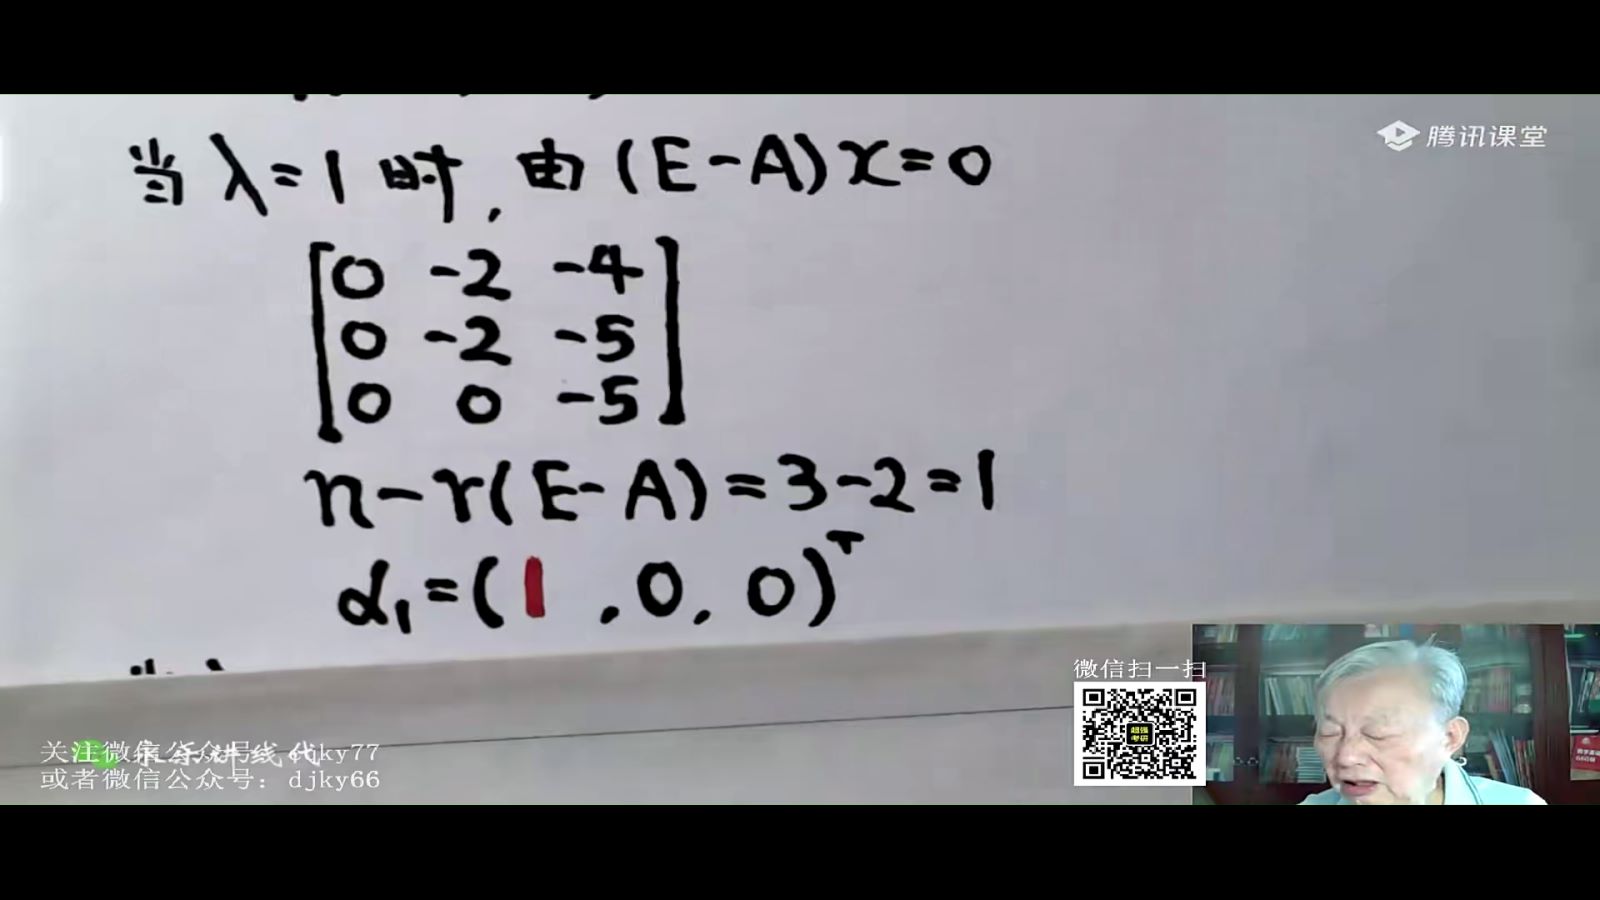 腾讯课堂
当 λ=1 时, 由 (E-A)x=0
0 -2 -4
0 -2 -5
0 0 -5
n-r(E-A)=3-2=1
α₁=(1,0,0)ᵀ
微信扫一扫
超强
考研
关注微信公众号: djky77
或者微信公众号: djky66
讲线代